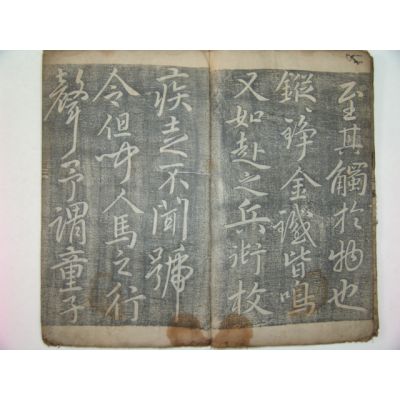 至其觸於物也
鏦〻錚〻金鐵皆鳴
又如赴之兵銜枚
疾走不聞號
令但聞人馬之行
聲予謂童子